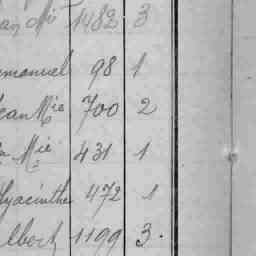 an Mie 1482 3
mmanuel 98 1
Jean Mie 700 2
Mie 431 1
Hyacinthe 472 1
lbert 1199 3.